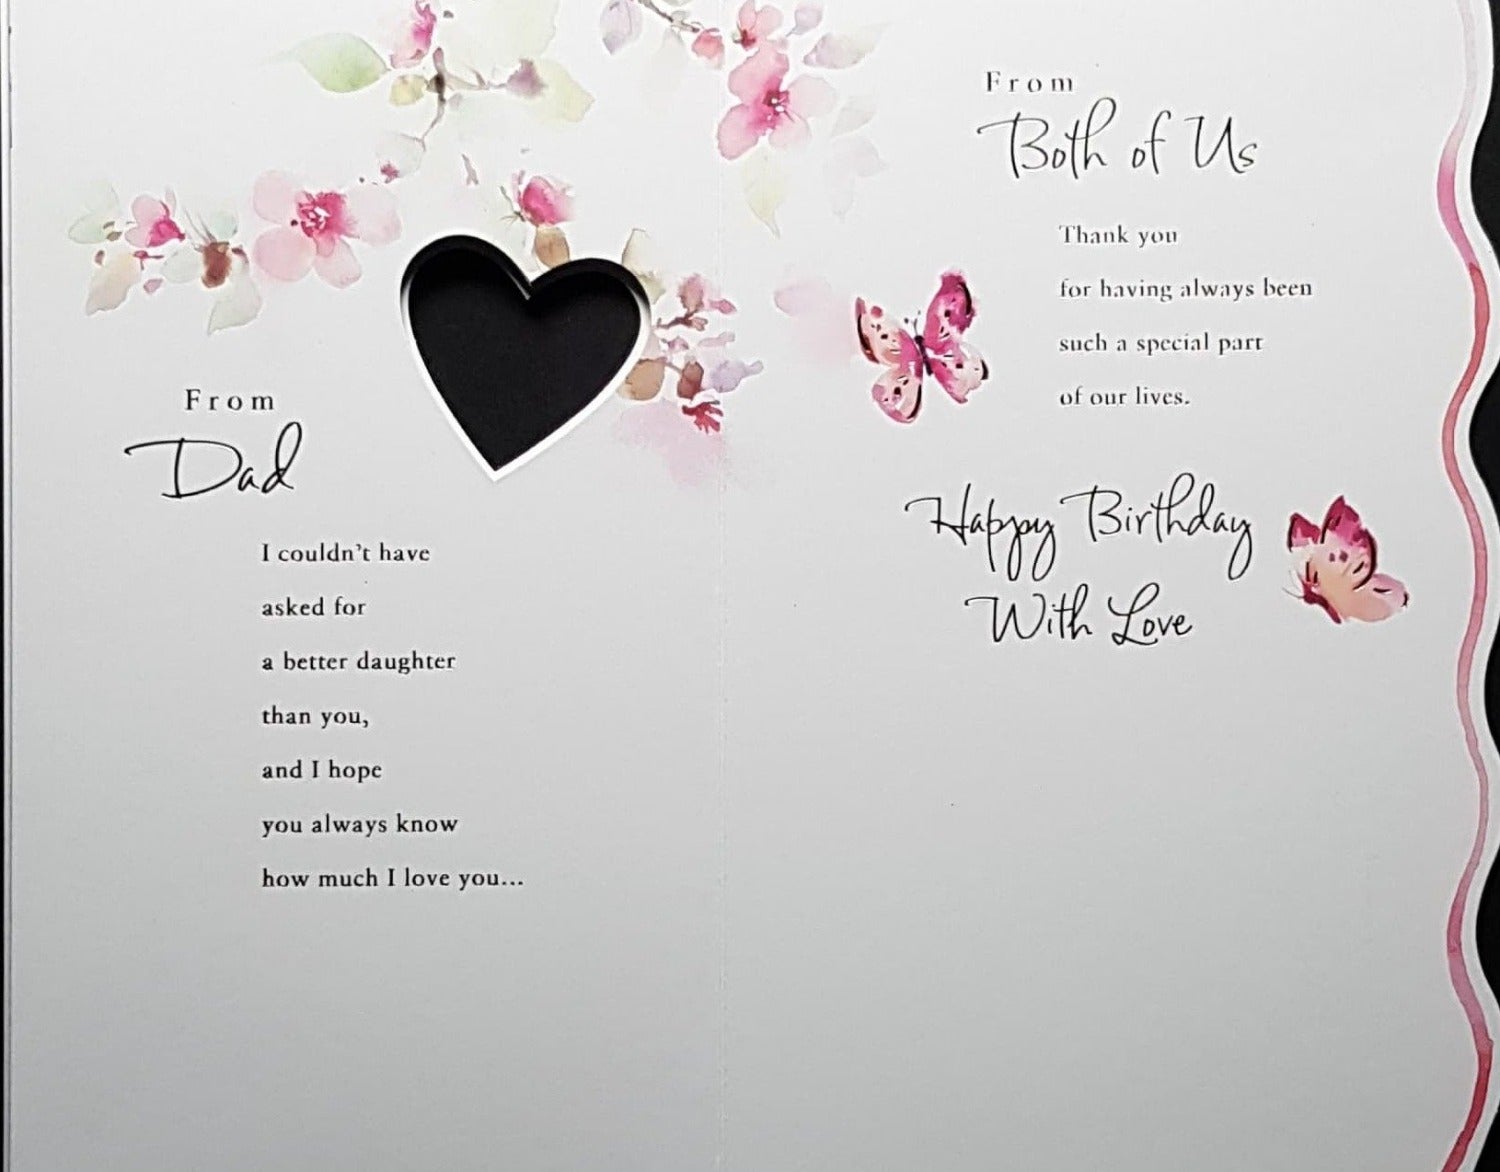 From
Dad
I couldn't have
asked for
a better daughter
than you,
and I hope
you always know
how much I love you...
From
Both of Us
Thank you
for having always been
such a special part
of our lives.
Happy Birthday
With Love